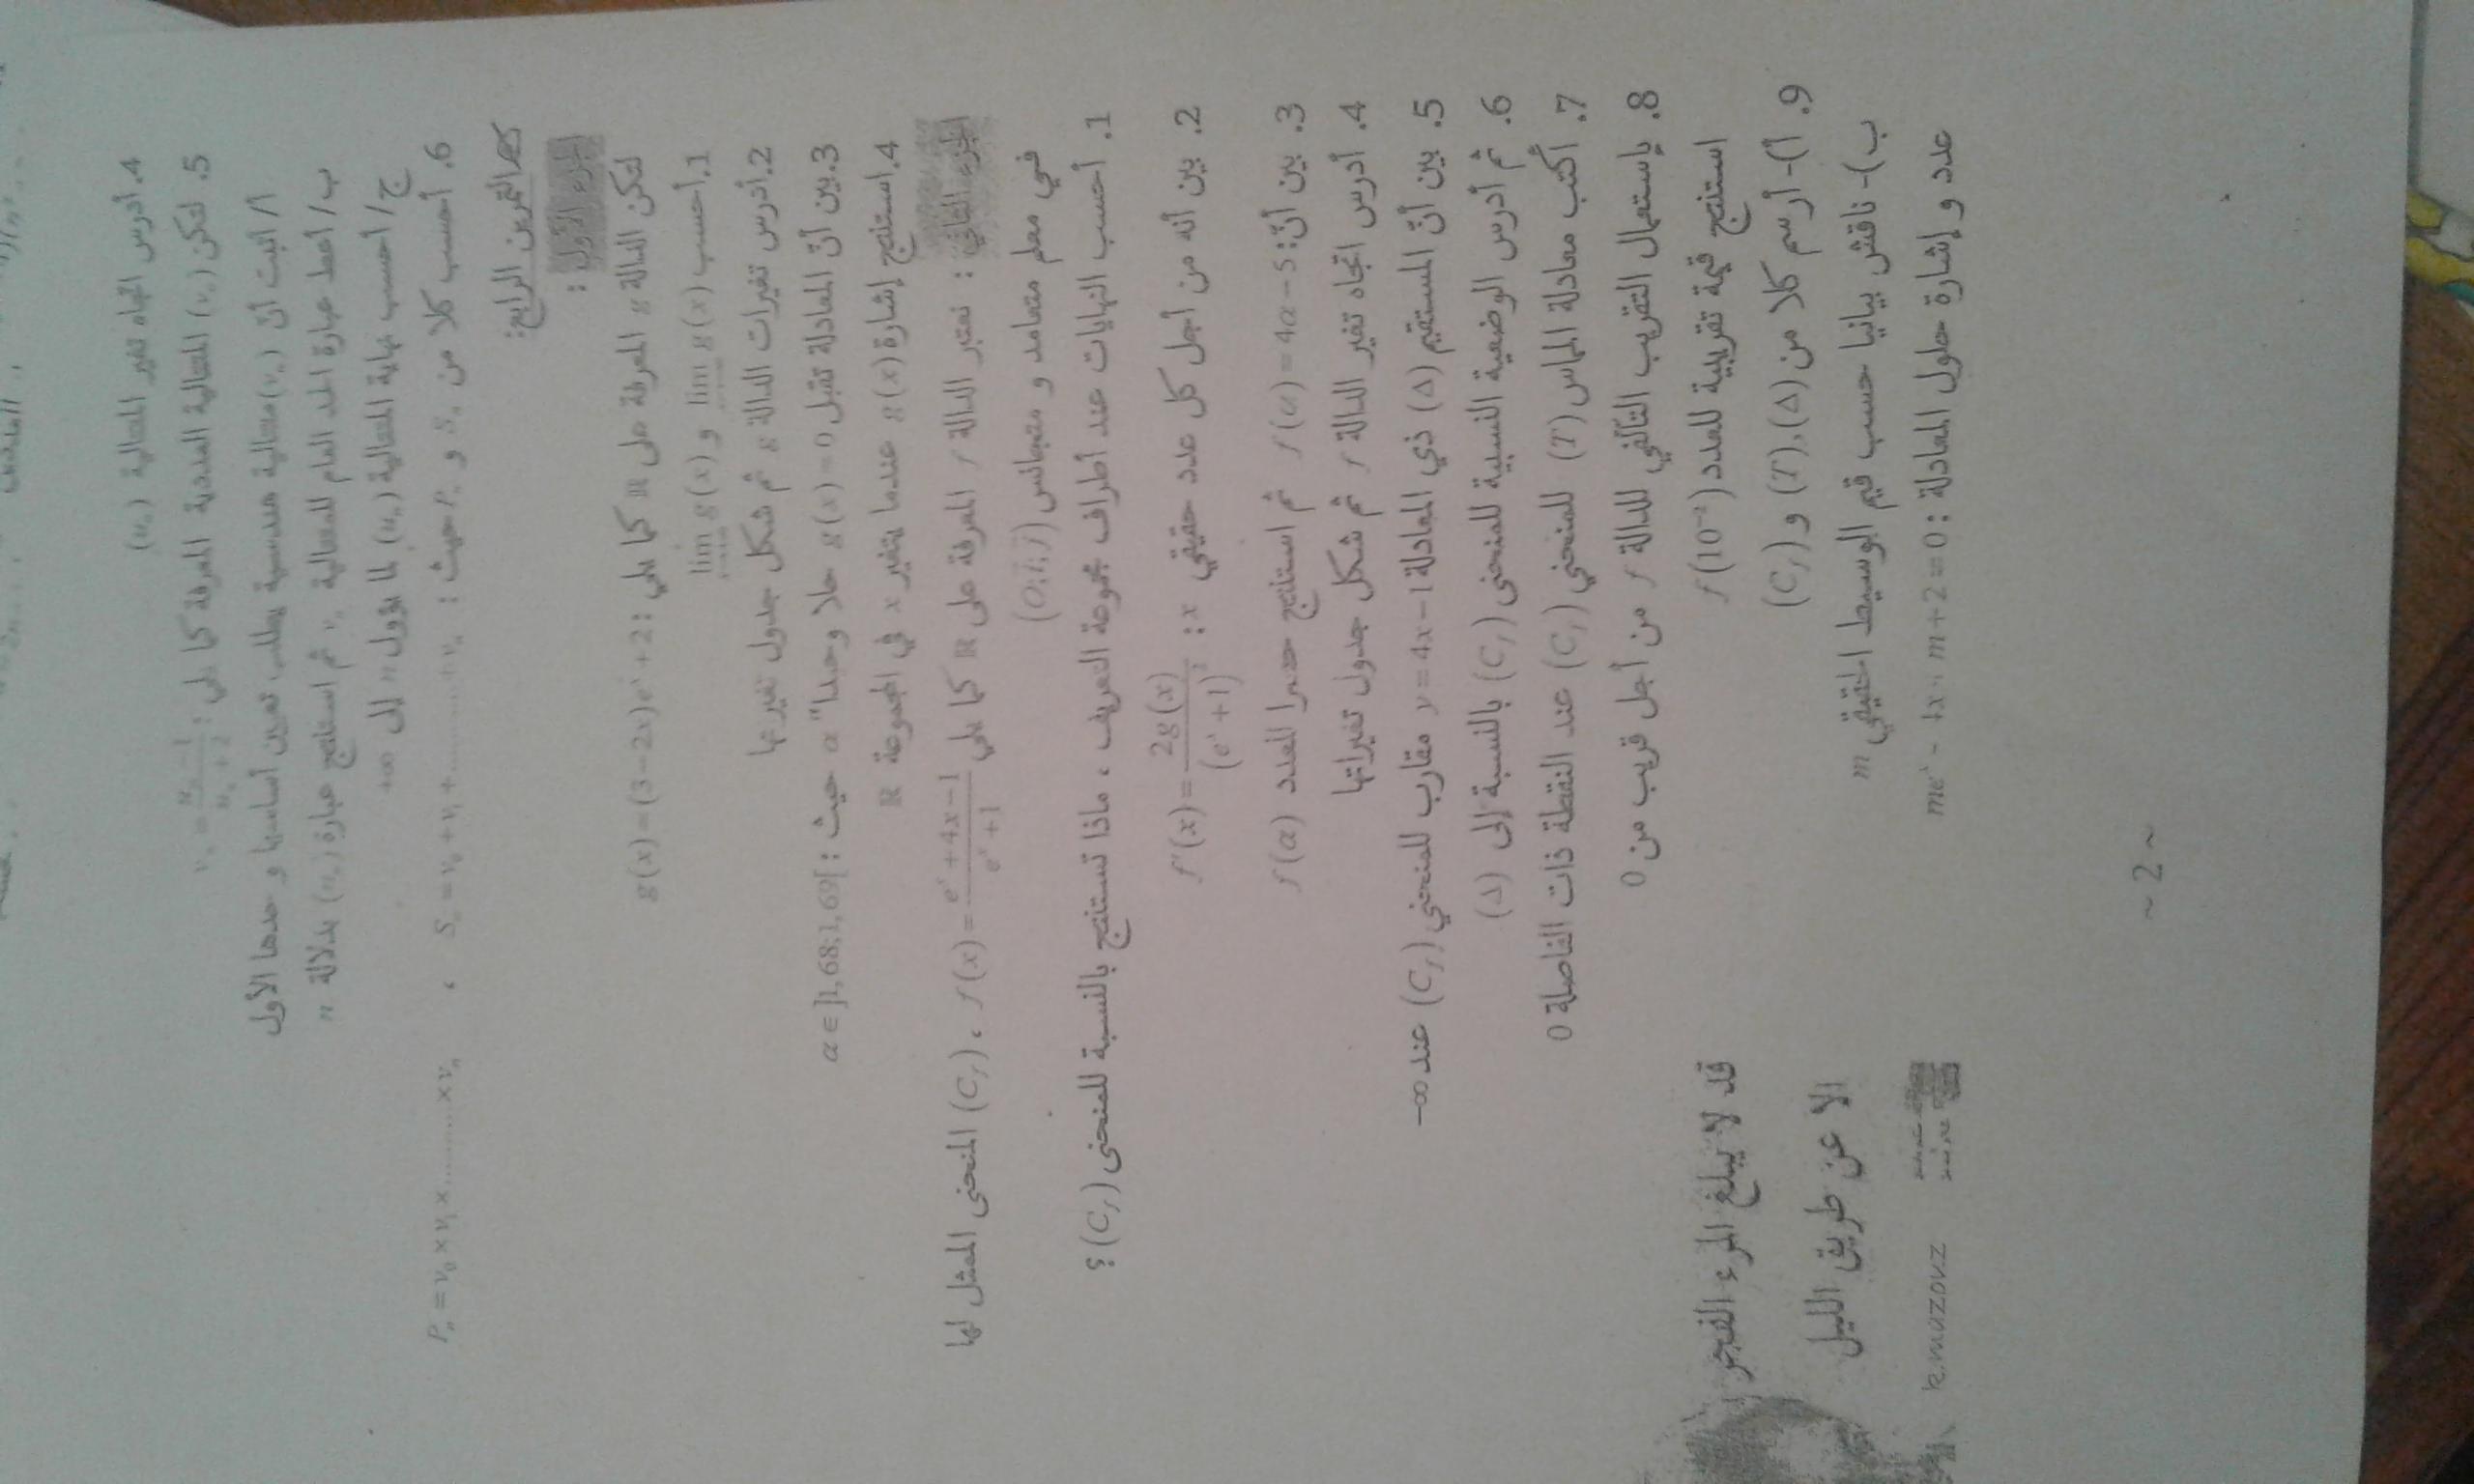 4. أدرس اتجاه تغير المتتالية (uₙ)
5. لتكن (vₙ) المتتالية العددية المعرفة كما يلي : vₙ = (uₙ − 1)/(uₙ + 2)
أ/ أثبت أنّ (vₙ) متتالية هندسية يطلب تعيين أساسها و حدها الأول
ب/ أعط عبارة الحد العام للمتتالية vₙ ثم استنتج عبارة (uₙ) بدلالة n
ج/ أحسب نهاية المتتالية (uₙ) لما يؤول n إلى +∞
6. أحسب كلا من Sₙ و Pₙ حيث : Sₙ = v₀ + v₁ + .......... + vₙ ، Pₙ = v₀ × v₁ × .......... × vₙ
التمرين الرابع:
الجزء الأول :
لتكن الدالة g المعرفة على ℝ كما يلي : g(x) = (3 − 2x)eˣ + 2
1. أحسب lim g(x) و lim g(x)
2. أدرس تغيرات الدالة g ثم شكل جدول تغيراتها
3. بين أنّ المعادلة g(x) = 0 تقبل حلا وحيدا "α حيث : α ∈ ]1,68;1,69[
4. استنتج إشارة g(x) عندما يتغير x في المجموعة ℝ
الجزء الثاني : نعتبر الدالة f المعرفة على ℝ كما يلي f(x) = (eˣ + 4x − 1)/(eˣ + 1) ، (C_f) المنحنى الممثل لها
في معلم متعامد و متجانس (O;i⃗;j⃗)
1. أحسب النهايات عند أطراف مجموعة التعريف ، ماذا تستنتج بالنسبة للمنحنى (C_f) ؟
2. بين أنه من أجل كل عدد حقيقي x : f'(x) = 2g(x)/(eˣ + 1)²
3. بين أنّ : f(α) = 4α − 5 ثم استنتج حصرا للعدد f(α)
4. أدرس اتجاه تغير الدالة f ثم شكل جدول تغيراتها
5. بين أنّ المستقيم (Δ) ذي المعادلة y = 4x − 1 مقارب للمنحني (C_f) عند −∞
6. ثم أدرس الوضعية النسبية للمنحنى (C_f) بالنسبة إلى (Δ)
7. أكتب معادلة المماس (T) للمنحني (C_f) عند النقطة ذات الفاصلة 0
8. بإستعمال التقريب التآلفي للدالة f من أجل قريب من 0
استنتج قيمة تقريبية للعدد f(10⁻²)
9. أ)- أرسم كلا من (Δ)،(T) و (C_f)
ب)- ناقش بيانيا حسب قيم الوسيط الحقيقي m
عدد و إشارة حلول المعادلة : meˣ − 4x + m + 2 = 0
قد لا يبلغ المرء الفجر
الا عن طريق الليل
k.mazouz
~ 2 ~